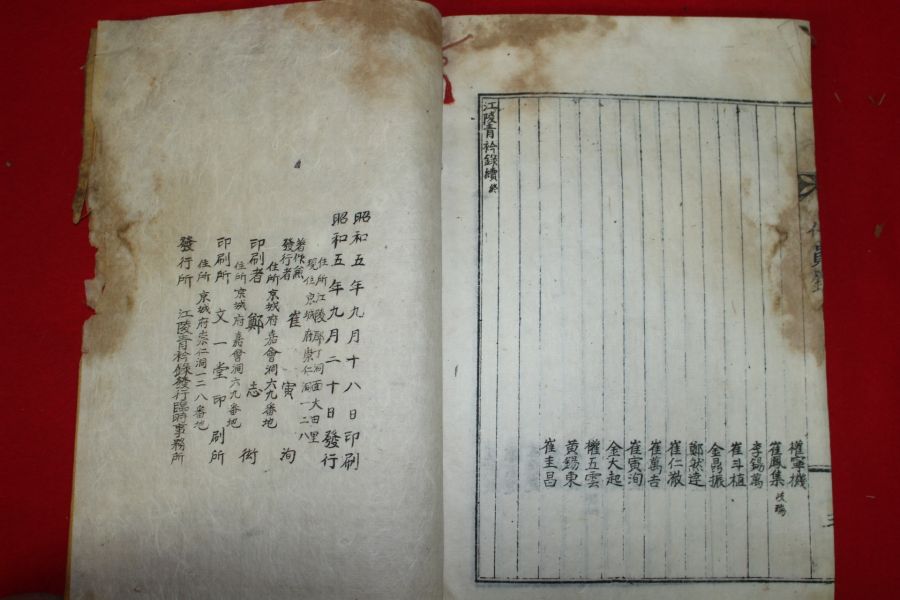 權寧機
崔鳳集
李錫萬
崔斗植
金昺振
鄭然達
崔仁澈
崔萬吉
崔寅洵
金大起
權五雲
黃錫東
崔圭昌
江陵青衿錄續終
昭和五年九月十八日印刷
昭和五年九月二十日發行
住所江陵郡丁洞面大田里
現住京城府崇仁洞一二八
著作兼發行者 崔寅洵
住所京城府嘉會洞六九番地
印刷者 鄭志衍
住所京城府嘉會洞六九番地
印刷所 文一堂印刷所
住所京城府崇仁洞一二八番地
發行所 江陵青衿錄發行臨時事務所